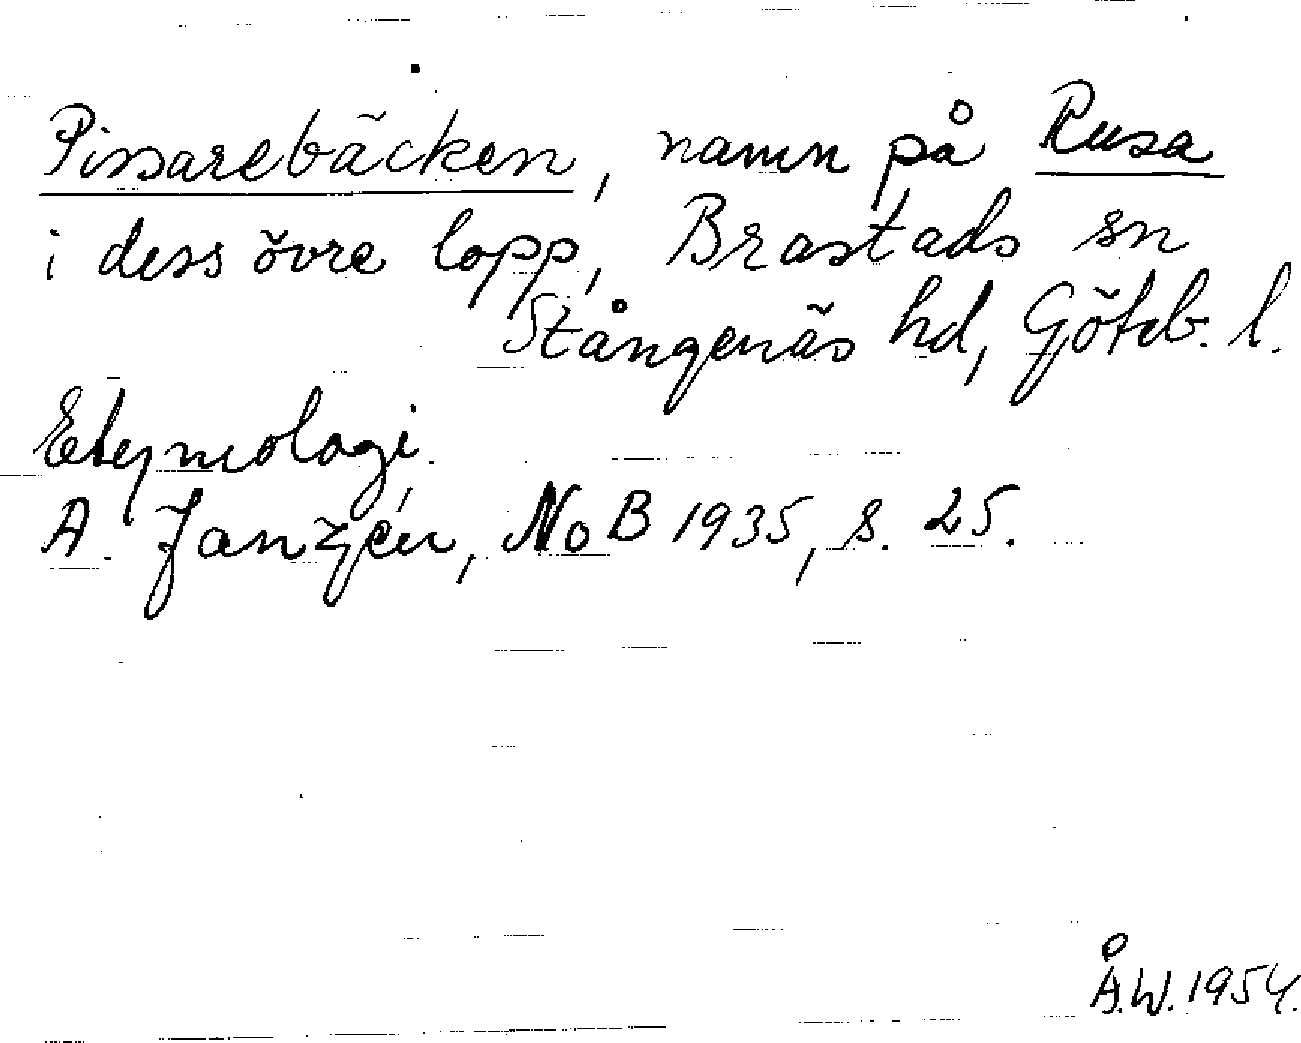 Pissarebäcken, namn på Rusa
i dess övre lopp, Brastads sn
Stångenäs hd, Göteb. l.
Etymologi.
A. Janzén, NoB 1935, s. 25.
Å.W. 1954.